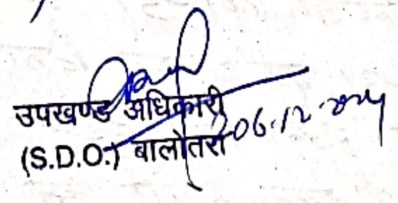 उपखण्ड अधिकारी
(S.D.O.) बालोतरा 06.12.2024